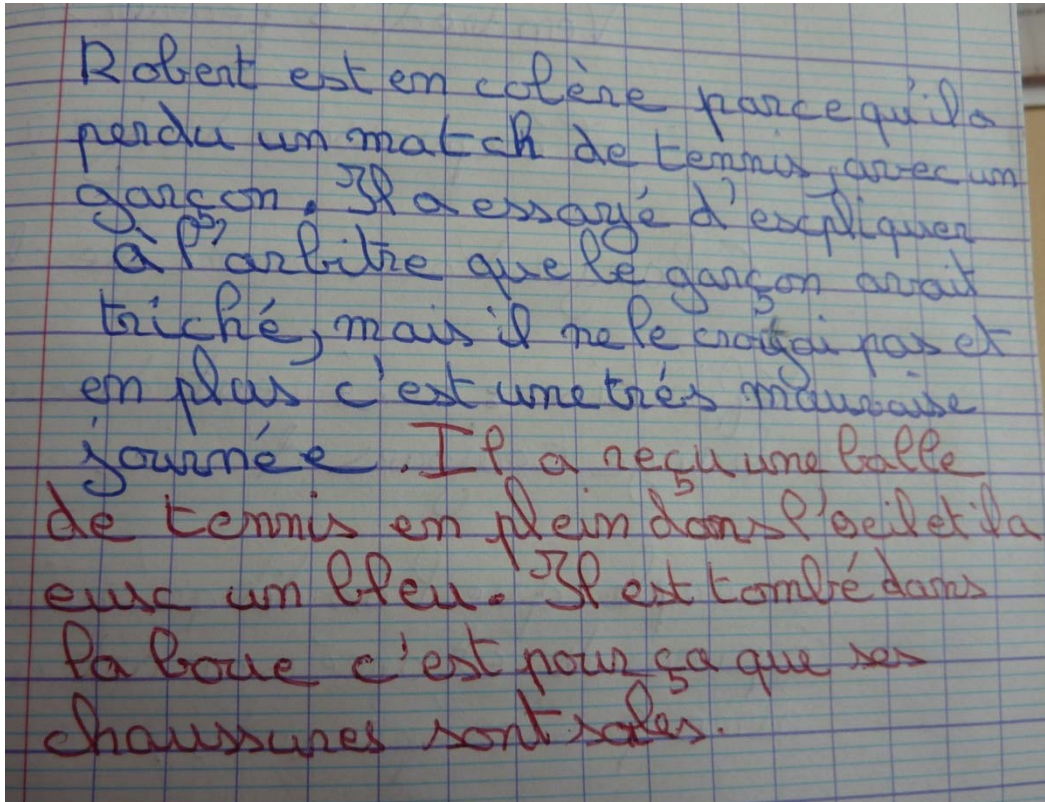 Robert est en colère parce qu'il a
perdu un match de tennis, avec un
garçon. Il a essayé d'expliquer
à l'arbitre que le garçon avait
triché, mais il ne le croyai pas et
en plus c'est une très mauvaise
journée. Il a reçu une balle
de tennis en plein dans l'oeil et il a
un bleu. Il est tombé dans
la boue c'est pour ça que ses
chaussures sont sales.